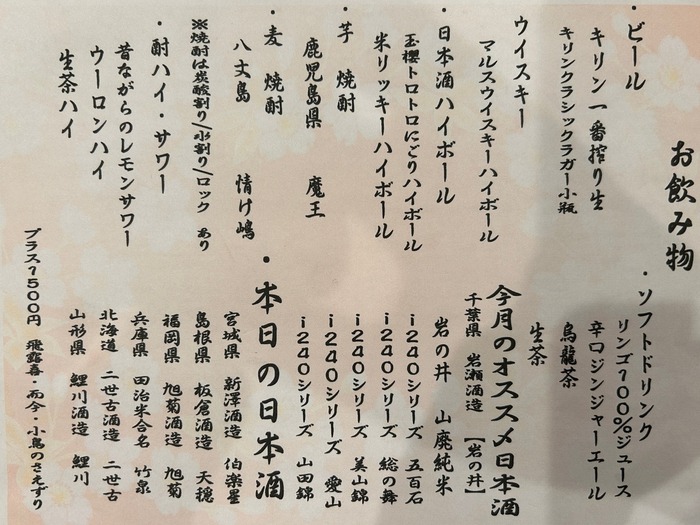 お飲み物
・ビール
キリン一番搾り生
キリンクラシックラガー小瓶
ウイスキー
マルスウイスキーハイボール
・日本酒ハイボール
玉櫻トロトロにごりハイボール
米リッキーハイボール
・芋 焼酎
鹿児島県 魔王
・麦 焼酎
八丈島 情け嶋
※焼酎は炭酸割り/水割り/ロック あり
・酎ハイ・サワー
昔ながらのレモンサワー
ウーロンハイ
生茶ハイ
・ソフトドリンク
リンゴ100%ジュース
辛口ジンジャーエール
烏龍茶
生茶
今月のオススメ日本酒
千葉県 岩瀬酒造 【岩の井】
岩の井 山廃純米
i240シリーズ 五百石
i240シリーズ 総の舞
i240シリーズ 美山錦
i240シリーズ 愛山
i240シリーズ 山田錦
・本日の日本酒
宮城県 新澤酒造 伯楽星
島根県 板倉酒造 天穏
福岡県 旭菊酒造 旭菊
兵庫県 田治米合名 竹泉
北海道 二世古酒造 二世古
山形県 鯉川酒造 鯉川
プラス1500円 飛露喜・而今・小鳥のさえずり